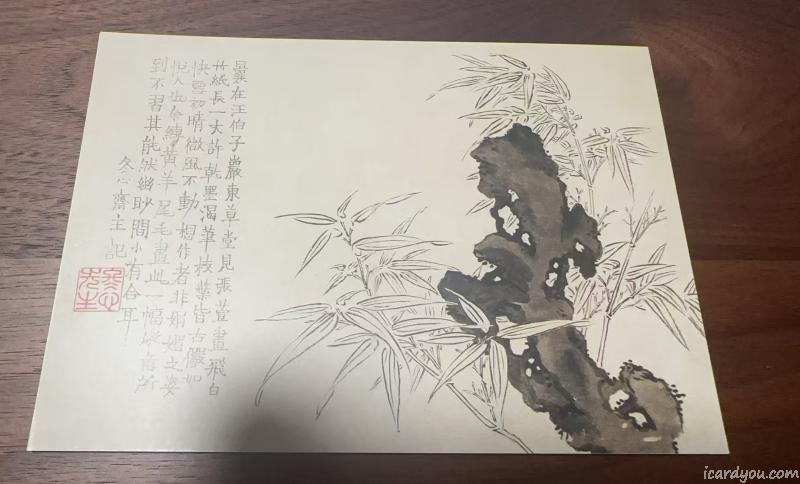 曩在汪伯子巖東草堂見張萱畫飛白
竹紙長一丈許乾墨渴筆枝葉皆古儼如
快雪初晴微風不動想作者非娟媚之姿
悅人也余縛黃羊尾毛畫此一幅縱意所
到不習其能然幽眇間小有合耳
冬心齋主記
冬心先生
icardyou.com